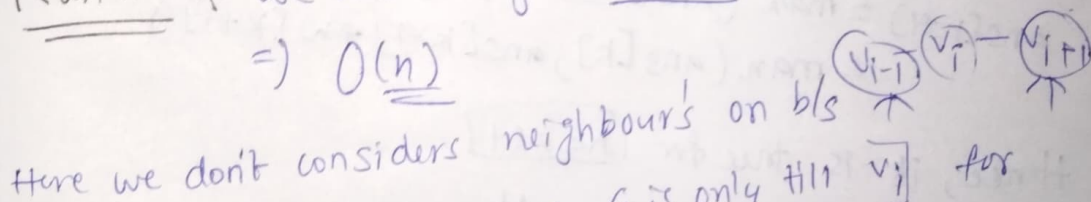 => O(n)
V_{i-1} - V_i - V_{i+1}
Here we don't considers neighbour's on b/s
is only till V_i for